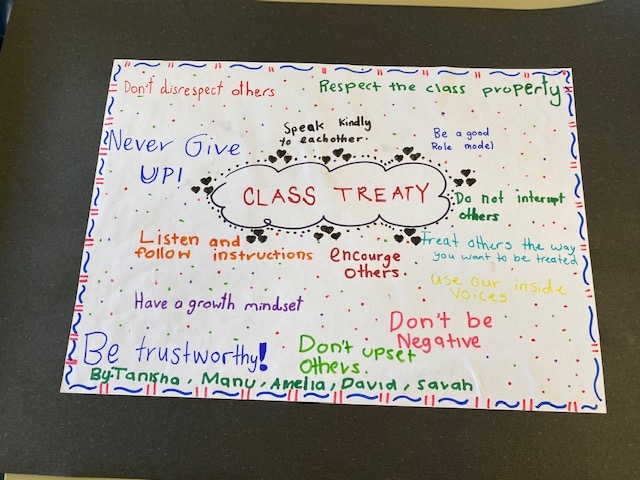 Don't disrespect others
Respect the class property
Speak kindly
to eachother.
Never Give
UP!
Be a good
Role model
CLASS TREATY
Do not interupt
others
Listen and
follow instructions
encourge
others
Treat others the way
you want to be treated
use our inside
voices
Have a growth mindset
Don't be
Negative
Be trustworthy!
Don't upset
others.
By:Tanisha, Manu, Amelia, David, Sarah